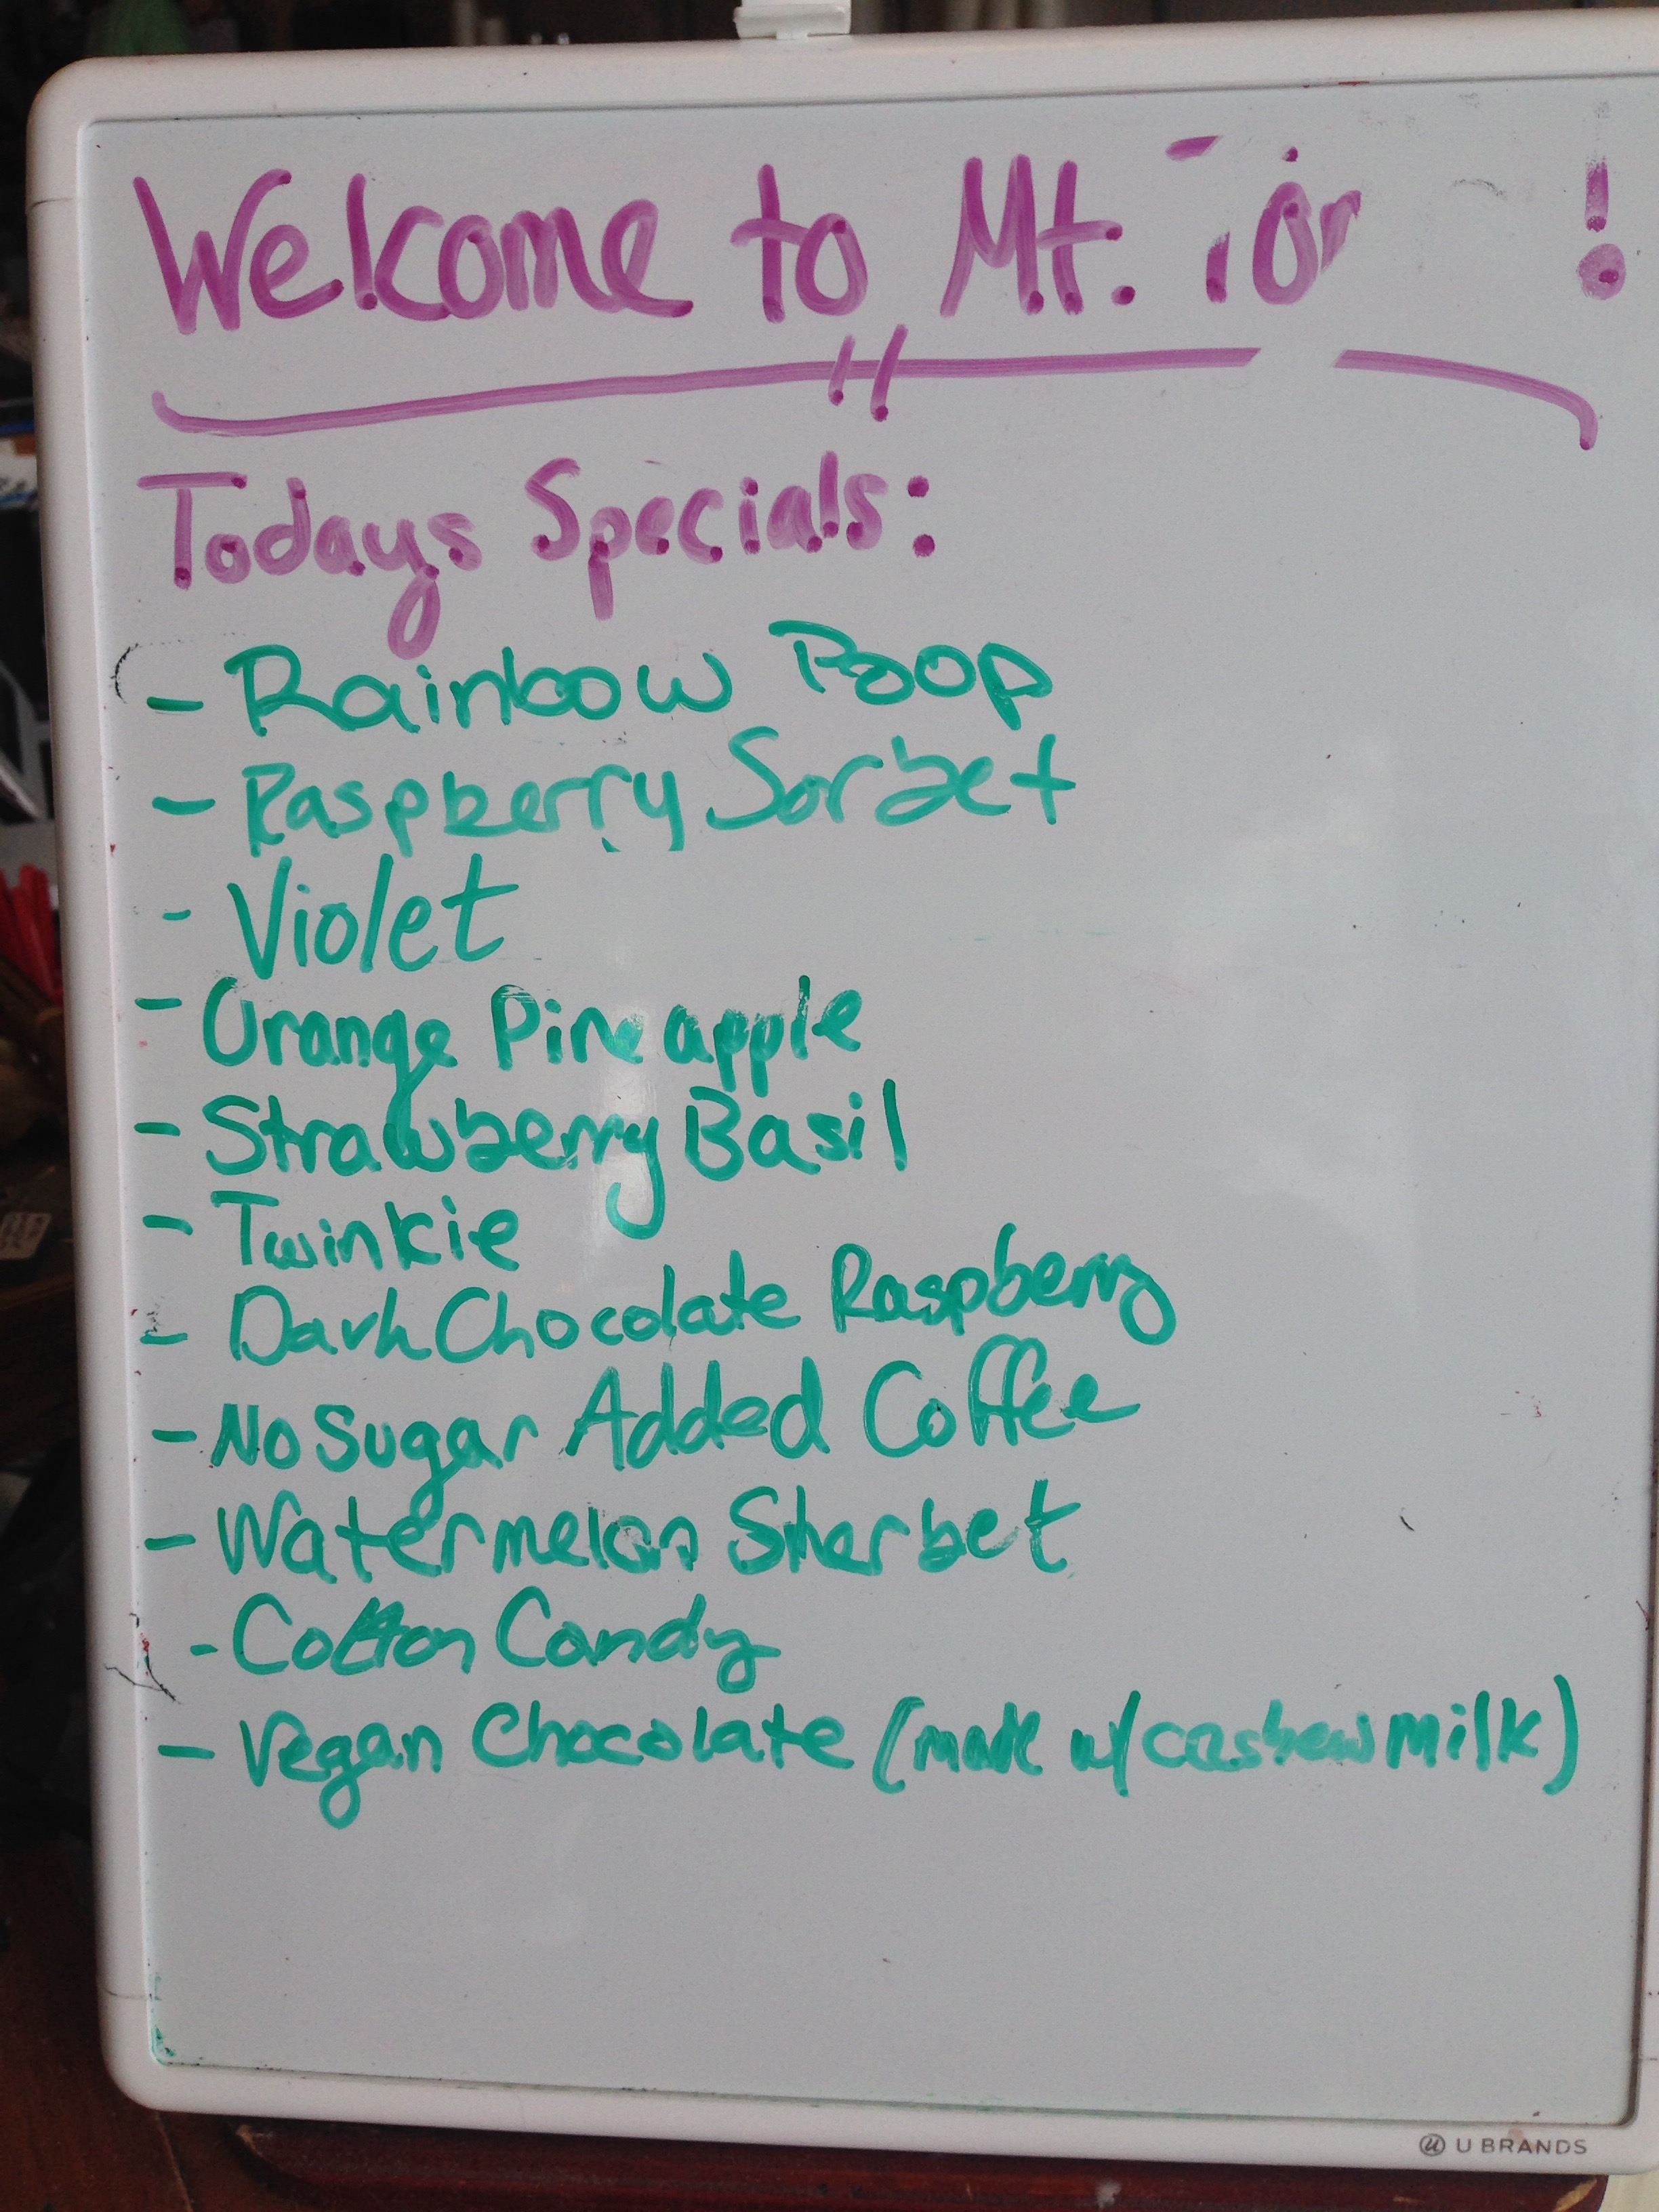 Welcome to Mt.
Todays Specials:
- Rainbow Poop
- Raspberry Sorbet
- Violet
- Orange Pineapple
- Strawberry Basil
- Twinkie
- Dark Chocolate Raspberry
- No Sugar Added Coffee
- Watermelon Sherbet
- Cotton Candy
- Vegan Chocolate (made w/ cashew milk)
U BRANDS